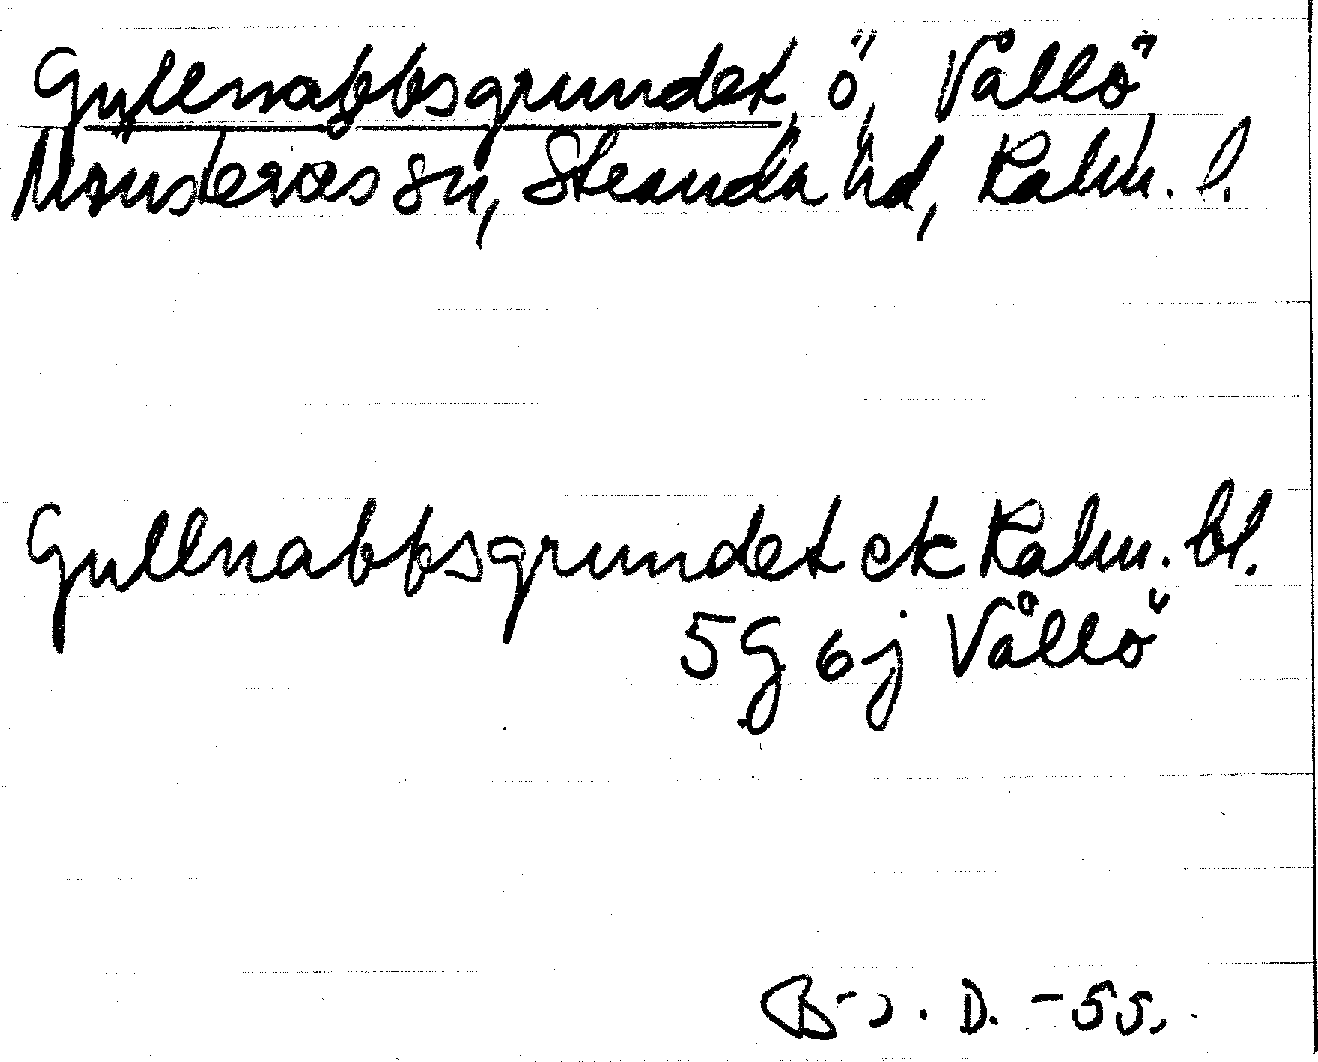 Gullnabbsgrundet, ö, Vållö
Mönsterås sn, Stranda hd, Kalm. l.
Gullnabbsgrundet ek Kalm. bl.
5 G 6 j Vållö
B-J. D. -55.